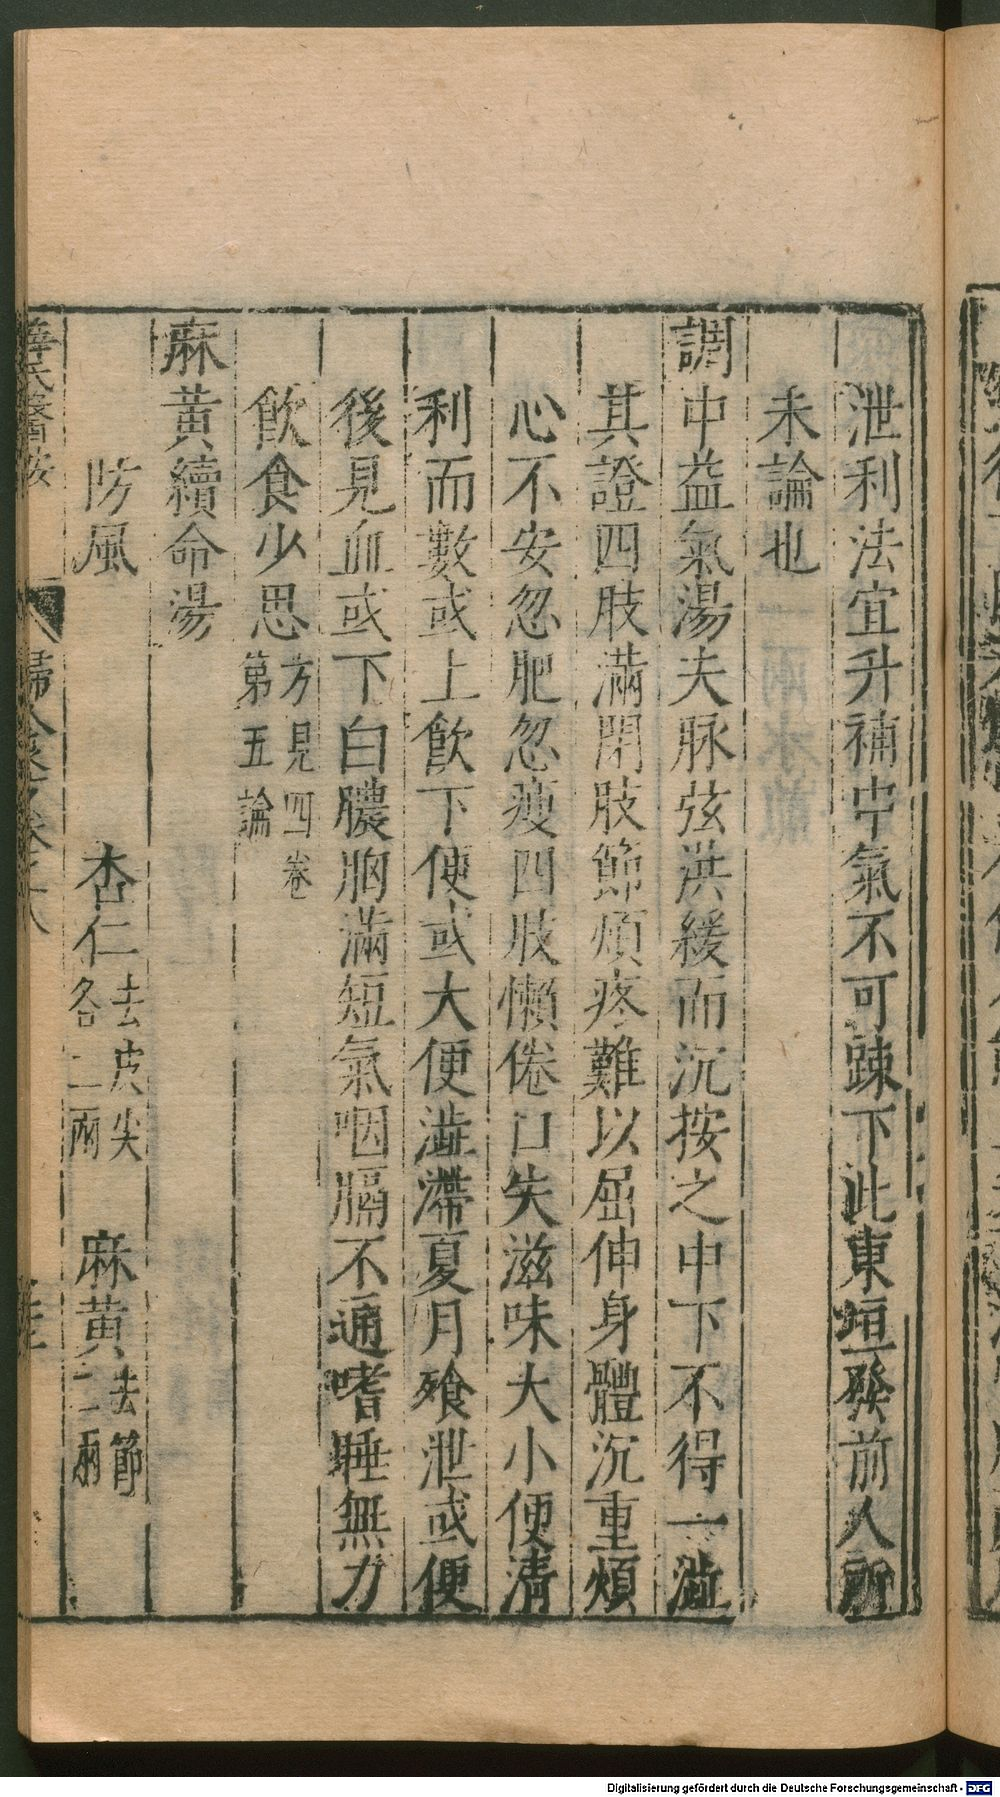 泄利法宜升補中氣不可踈下此東垣發前人所
未論也
調中益氣湯夫脉弦洪緩而沉按之中下不得一澁
其證四肢滿閉肢節煩疼難以屈伸身體沉重煩
心不安忽肥忽瘦四肢懶倦口失滋味大小便清
利而數或上飲下便或大便澁滯夏月飱泄或便
後見血或下白膿胸滿短氣咽膈不通嗜睡無力
飲食少思方見四卷第五論
麻黃續命湯
防風 杏仁去皮尖各二兩 麻黃去節二兩
薛氏醫按
Digitalisierung gefördert durch die Deutsche Forschungsgemeinschaft - DFG